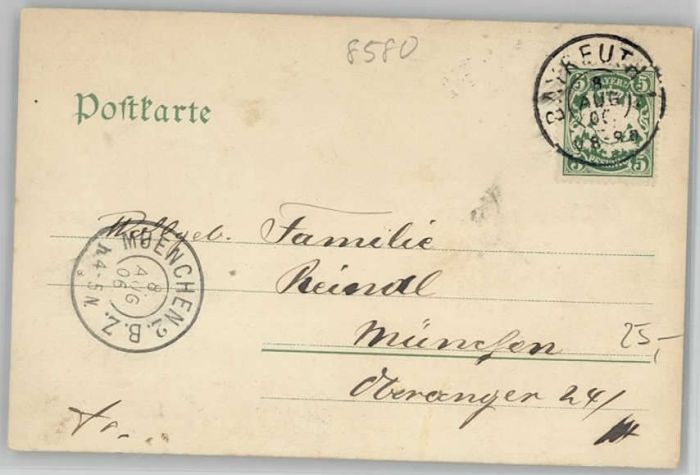 8580
BAYREUTH 1
8
AUG
06
8-9
5 BAYERN 5
5 5
Postkarte
Wohlgeb. Familie
Reindl
München
Oberanger 24/
25,-
MUENCHEN 2. B.Z.
8
AUG
06
4-5 N.